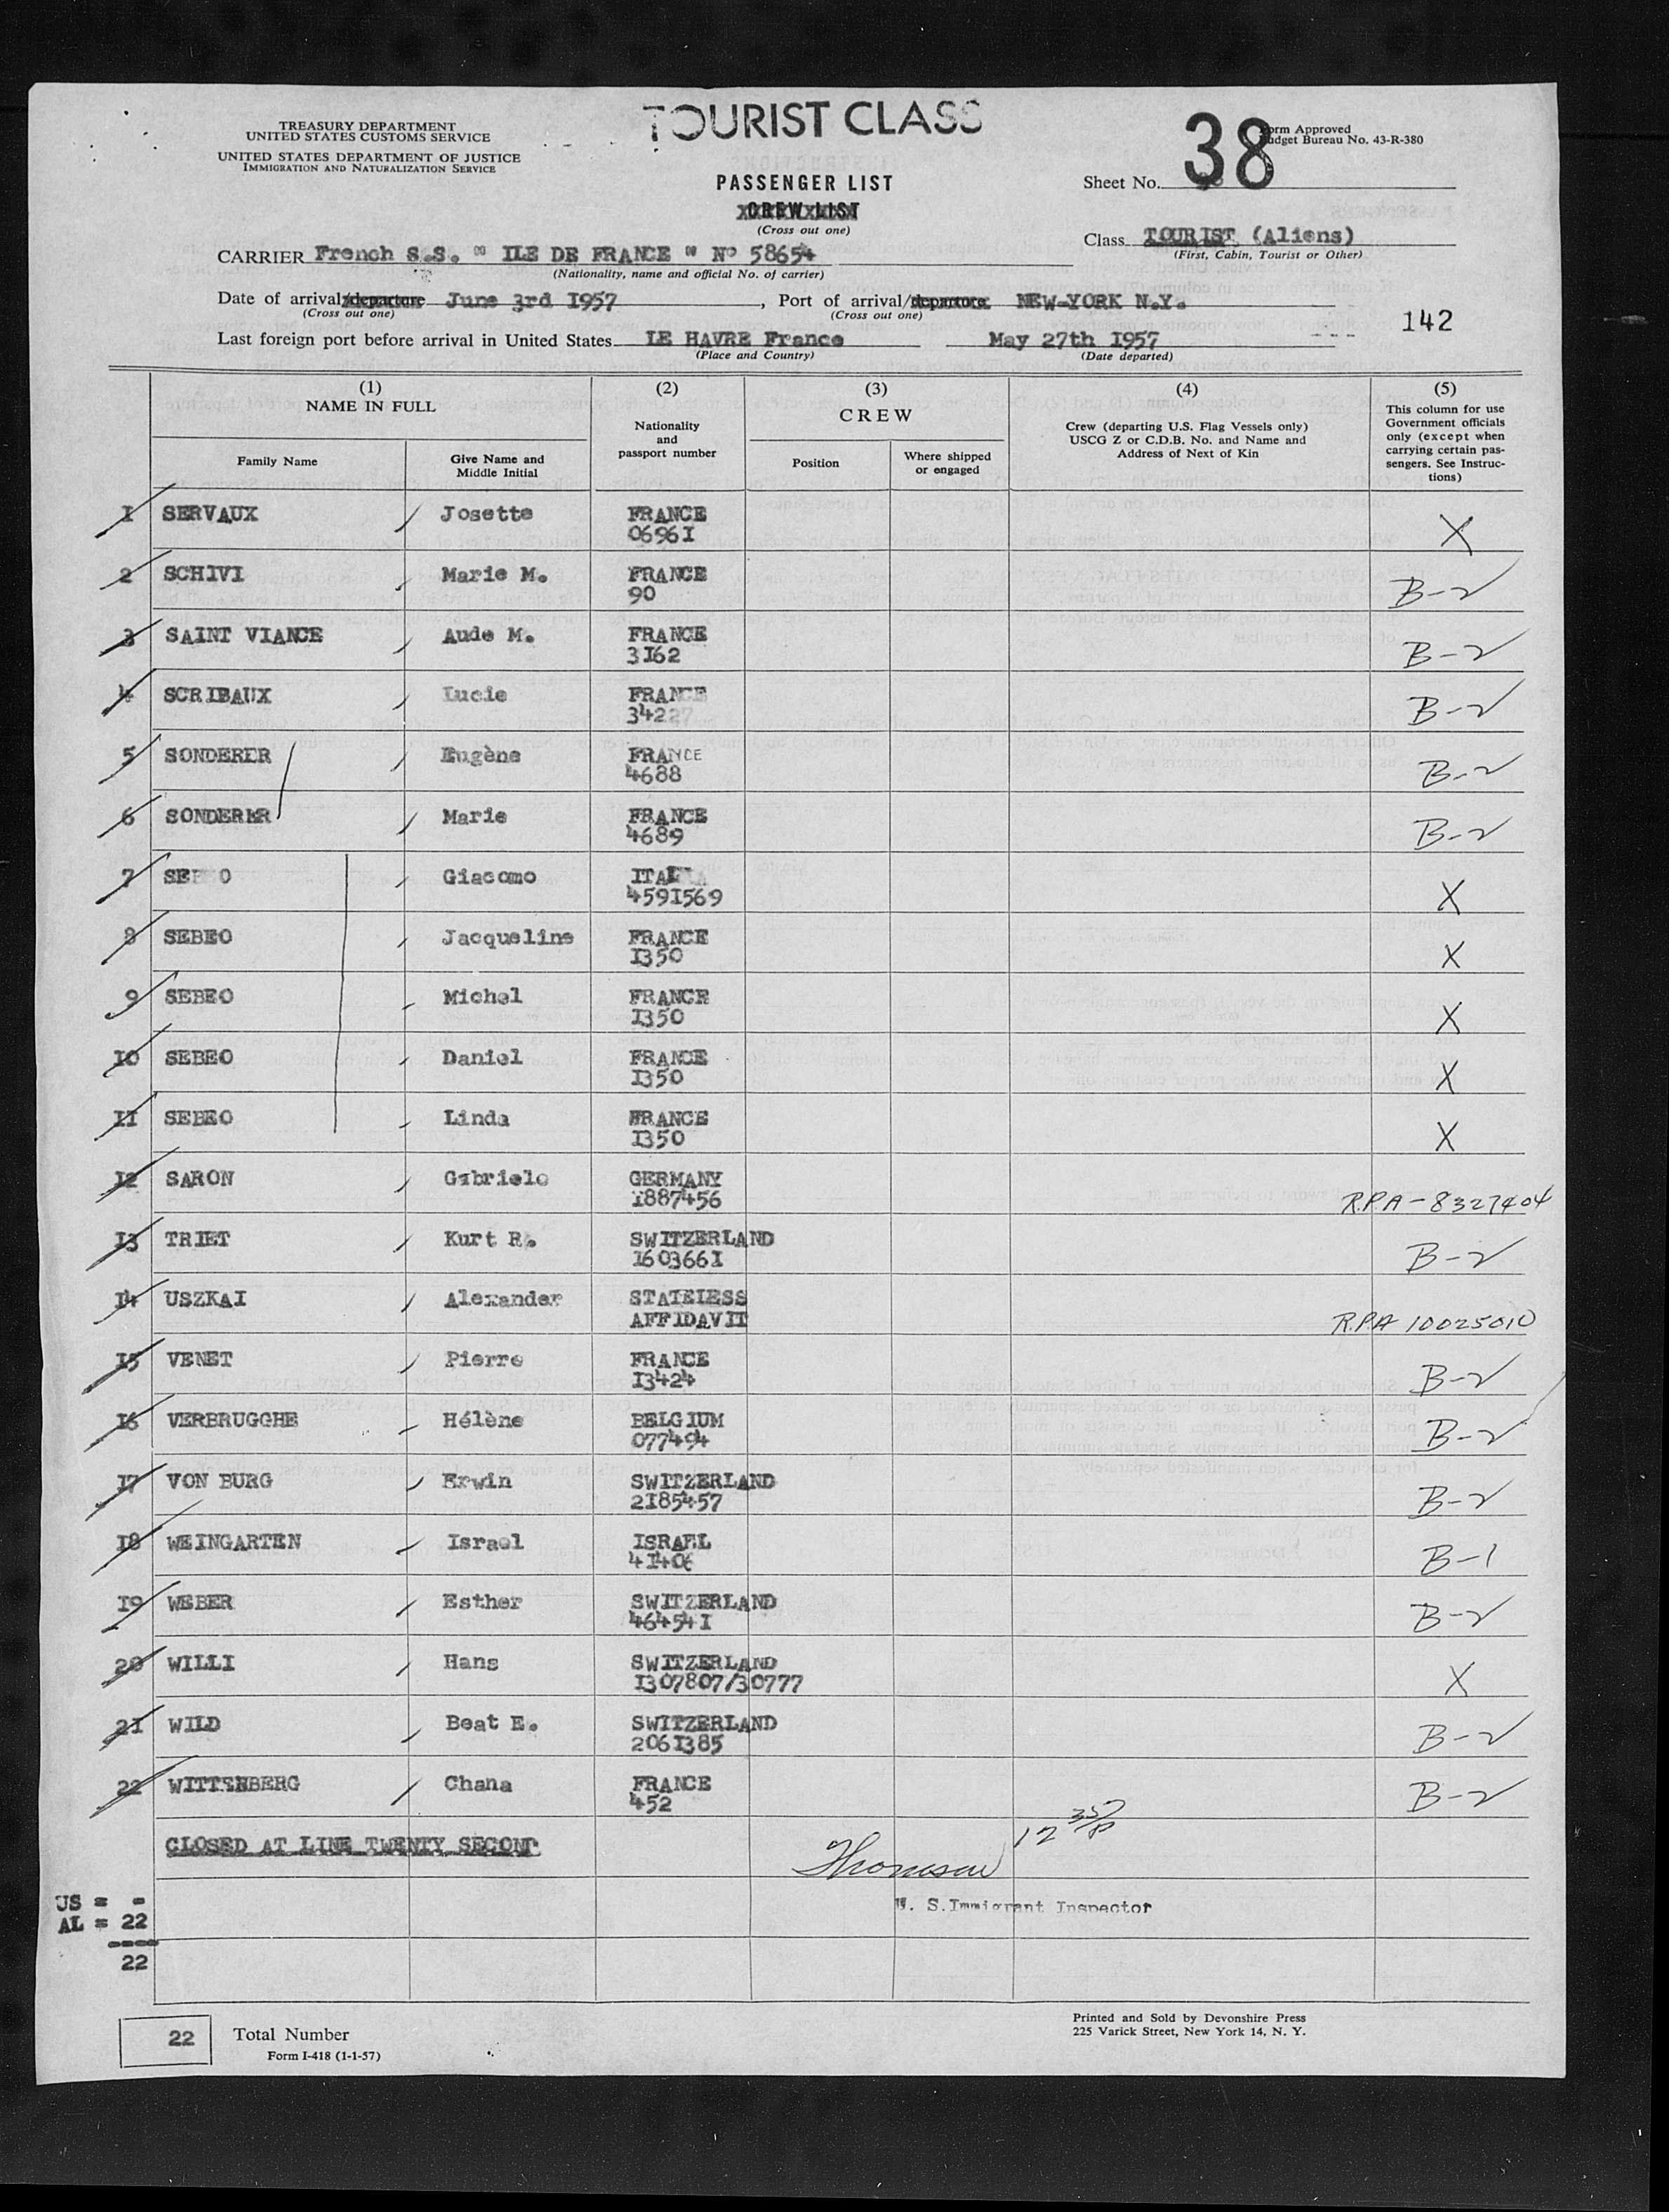 TOURIST CLASS
TREASURY DEPARTMENT
UNITED STATES CUSTOMS SERVICE
UNITED STATES DEPARTMENT OF JUSTICE
IMMIGRATION AND NATURALIZATION SERVICE
PASSENGER LIST
CREW LIST
(Cross out one)
38
Form Approved
Budget Bureau No. 43-R-380
Sheet No.
Class TOURIST (Aliens)
(First, Cabin, Tourist or Other)
CARRIER French S.S. " ILE DE FRANCE " No 58654
(Nationality, name and official No. of carrier)
Date of arrival/departure June 3rd I957, Port of arrival/departure NEW-YORK N.Y.
(Cross out one) (Cross out one)
142
Last foreign port before arrival in United States LE HAVRE France May 27th I957
(Place and Country) (Date departed)
(1) NAME IN FULL
Family Name
Give Name and Middle Initial
(2) Nationality and passport number
(3) CREW
Position
Where shipped or engaged
(4) Crew (departing U.S. Flag Vessels only) USCG Z or C.D.B. No. and Name and Address of Next of Kin
(5) This column for use Government officials only (except when carrying certain passengers. See Instructions)
I SERVAUX Josette FRANCE 0696I X
2 SCHIVI Marie M. FRANCE 90 B-2
3 SAINT VIANCE Aude M. FRANCE 3I62 B-2
4 SCRIBAUX Lucie FRANCE 34227 B-2
5 SONDERER Eugène FRANCE 4688 B-2
6 SONDERER Marie FRANCE 4689 B-2
7 Giacomo 459I569 X
8 SEBEO Jacqueline FRANCE I350 X
9 SEBEO Michel FRANCE I350 X
I0 SEBEO Daniel FRANCE I350 X
II SEBEO Linda FRANCE I350 X
I2 SARON Gabriele GERMANY I887456 R.P.A-8327404
I3 TRIET Kurt R. SWITZERLAND I60366I B-2
I4 USZKAI Alexander STATELESS AFFIDAVIT R.P.A 10025010
I5 VENET Pierre FRANCE I3424 B-2
I6 VERBRUGGHE Hélène BELGIUM 077494 B-2
I7 VON BURG Erwin SWITZERLAND 2I85457 B-2
I8 WEINGARTEN Israel ISRAEL 4I406 B-1
I9 WEBER Esther SWITZERLAND 46454I B-2
20 WILLI Hans SWITZERLAND I307807/30777 X
2I WILD Beat E. SWITZERLAND 206I385 B-2
22 WITTENBERG Chana FRANCE 452 B-2
CLOSED AT LINE TWENTY SECOND
Thomson
12 35 P
U. S. Immigrant Inspector
US = -
AL = 22
----
22
22 Total Number
Form I-418 (1-1-57)
Printed and Sold by Devonshire Press
225 Varick Street, New York 14, N. Y.